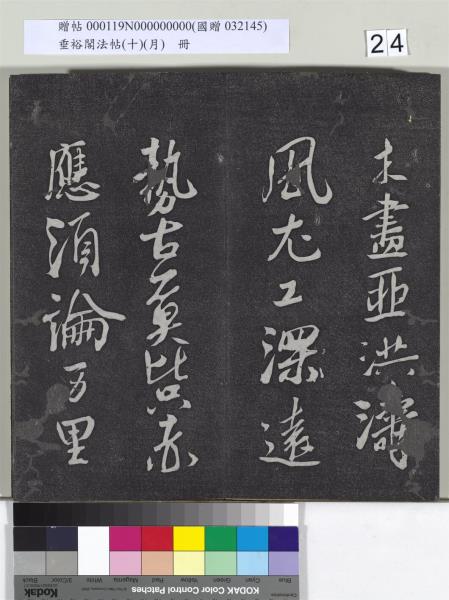 贈帖 000119N000000000(國贈 032145)
垂裕閣法帖(十)(月) 冊
24
木盡亞洪濤
風尤工深遠
勢古莫比赤
應須論万里
Blue Cyan Green Yellow Red Magenta White 3/Color Black
Kodak KODAK Color Control Patches